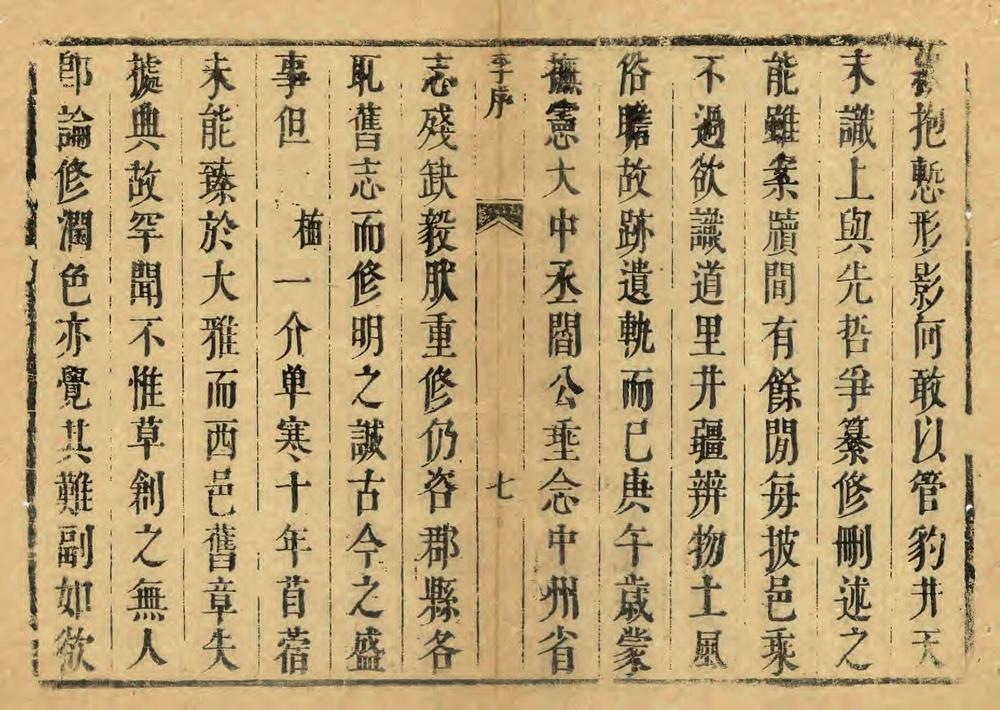 抱慙形影何敢以管豹井天
末識上與先哲爭纂修刪述之
能雖案牘間有餘閒每披邑乘
不過欲識道里井疆辨物土風
俗瞻故跡遺軌而已庚午歲蒙
撫憲大中丞閻公埀念中州省
序
七
志殘缺毅肰重修仍咨郡縣各
耴舊志而修明之誠古今之盛
事但 植一介单寒十年苜蓿
未能臻於大雅而酉邑舊章失
據典故罕聞不惟草創之無人
卽論修濶色亦覺其難副如欲